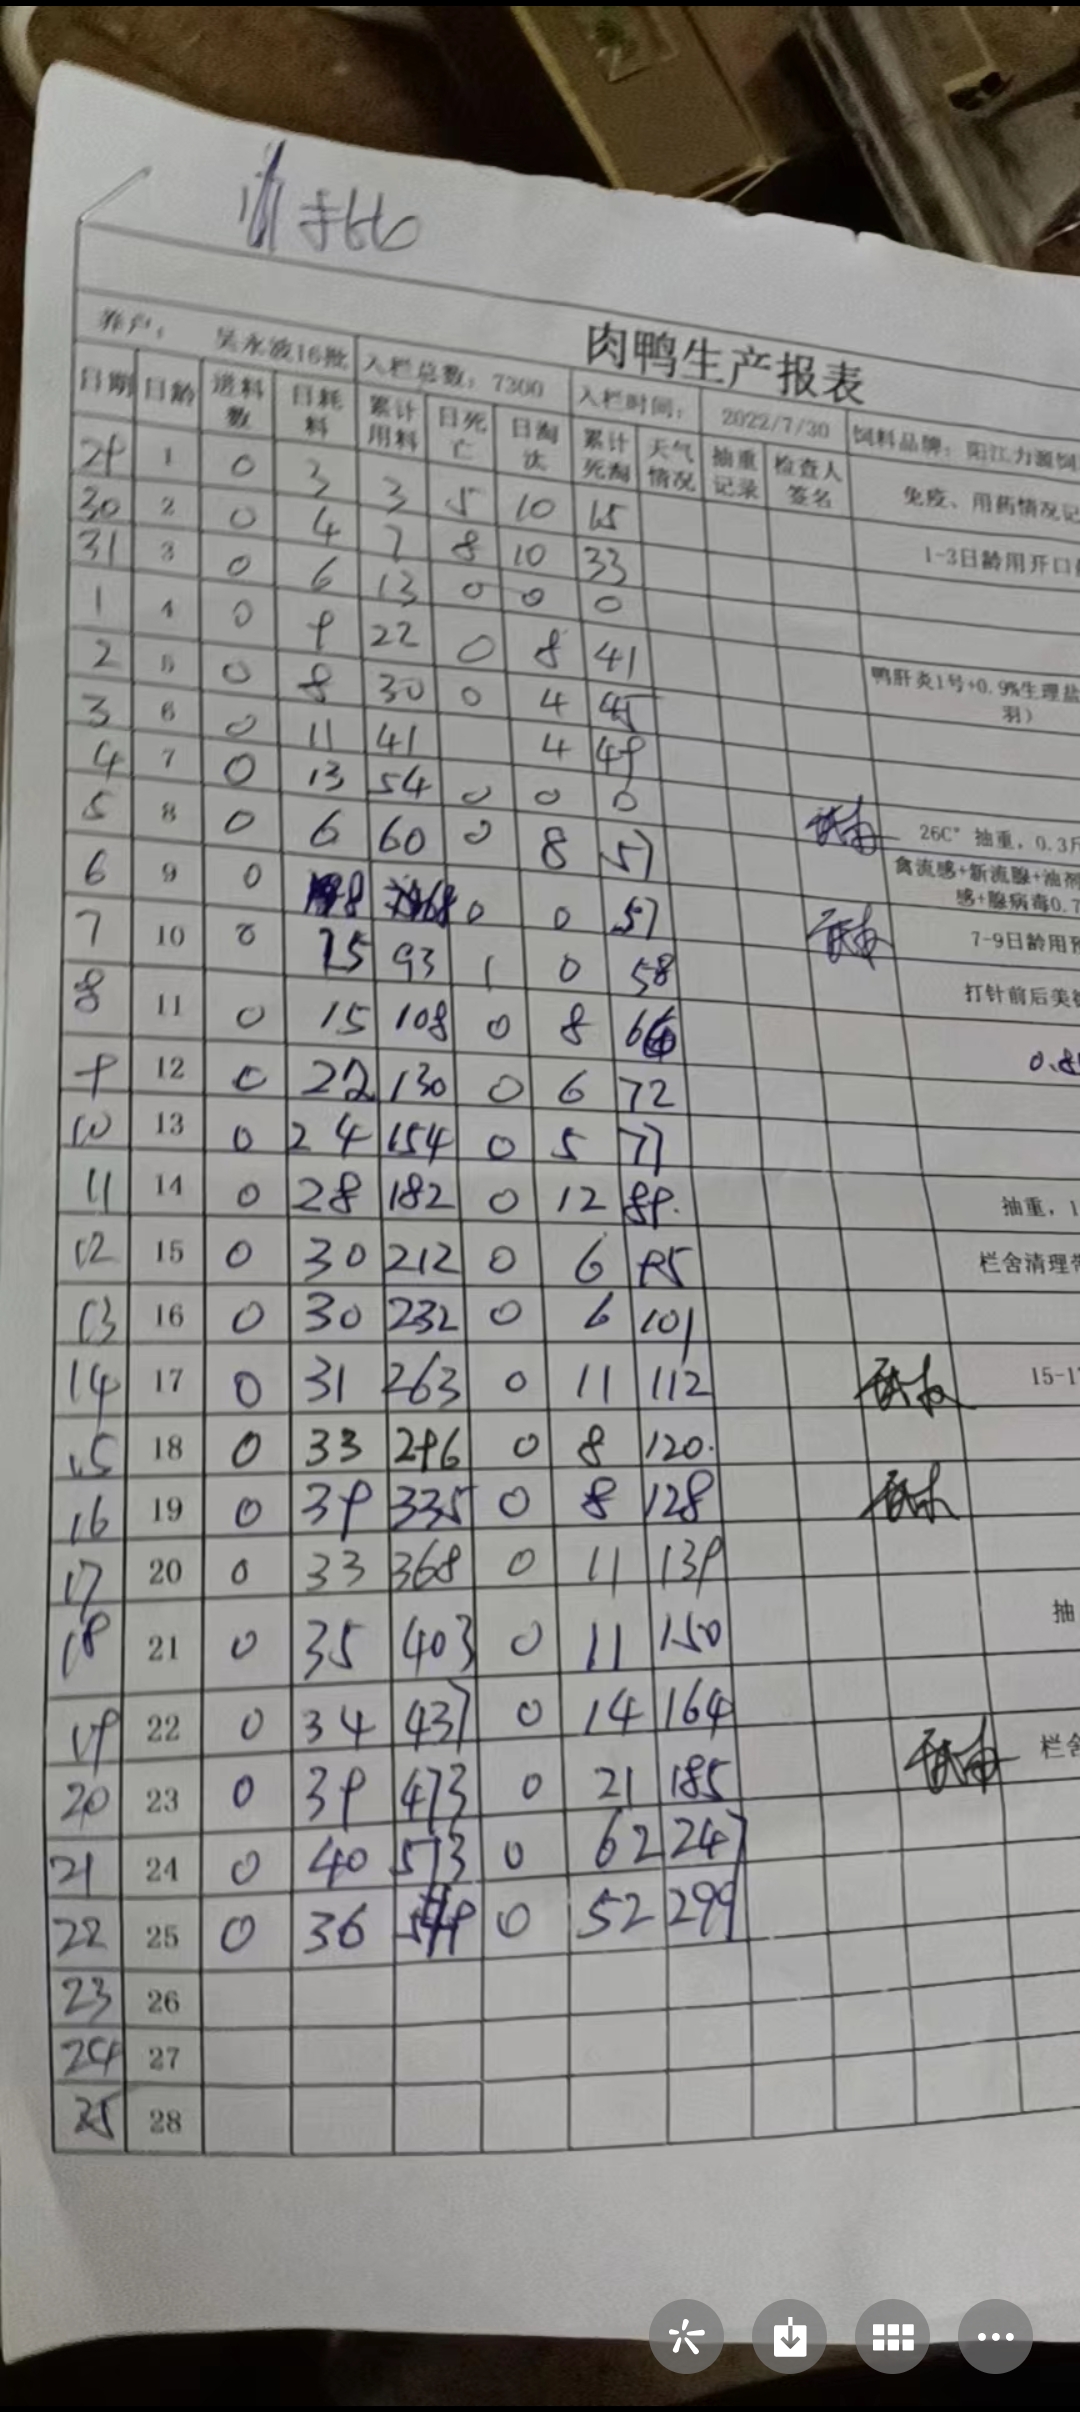 肉鸭生产报表
养户： 吴永波16批 入栏总数：7300 入栏时间： 2022/7/30 饲料品牌：阳江力源饲
日期 日龄 进料数 日耗料 累计用料 日死亡 日淘汰 累计死淘 天气情况 抽重记录 检查人签名 免疫、用药情况记
29 1 0 3 3 5 10 15
30 2 0 4 7 8 10 33 1-3日龄用开口
31 3 0 6 13 0 0 0
1 4 0 9 22 0 8 41
2 5 0 8 30 0 4 45 鸭肝炎1号+0.9%生理盐
羽）
3 6 0 11 41 4 49
4 7 0 13 54 0 0 0
5 8 0 6 60 0 8 57 26C° 抽重，0.3斤
6 9 0 8 68 0 0 57 禽流感+新流腺+油剂
感+腺病毒0.7
7 10 0 25 93 1 0 58 7-9日龄用预
8 11 0 15 108 0 8 66 打针前后美
9 12 0 22 130 0 6 72 0.8
10 13 0 24 154 0 5 77
11 14 0 28 182 0 12 89. 抽重，1
12 15 0 30 212 0 6 95 栏舍清理带
13 16 0 30 232 0 6 101
14 17 0 31 263 0 11 112 15-17
15 18 0 33 296 0 8 120.
16 19 0 39 335 0 8 128
17 20 0 33 368 0 11 139
18 21 0 35 403 0 11 150 抽
19 22 0 34 437 0 14 164
20 23 0 39 473 0 21 185 栏舍
21 24 0 40 513 0 62 247
22 25 0 36 549 0 52 299
23 26
24 27
25 28